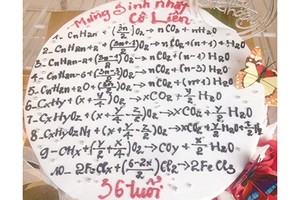 Mừng Sinh nhật
Cô Liên
1- CnH2n + (3n/2)O2 → nCO2 + nH2O
2- CnH2n+2 + (3n+1/2)O2 → nCO2 + (n+1) H2O
3- CnH2n-2 + (3n-1/2)O2 → nCO2 + (n-1) H2O
4- CnH2n-6 + (3n-3/2)O2 → nCO2 + (n-3) H2O
5- CnH2n+2O + (3n/2)O2 → nCO2 + (n+1) H2O
6- CxHy + (x + y/4)O2 → xCO2 + y/2 H2O
7- CxHyOz + (x + y/4 - z/2)O2 → xCO2 + y/2 H2O
8- CxHyOzNt + (x + y/4 - z/2)O2 → xCO2 + y/2 H2O + t/2 N2
10- 2FeClx + (6-2x/2)Cl2 → 2FeCl3
36 tuổi